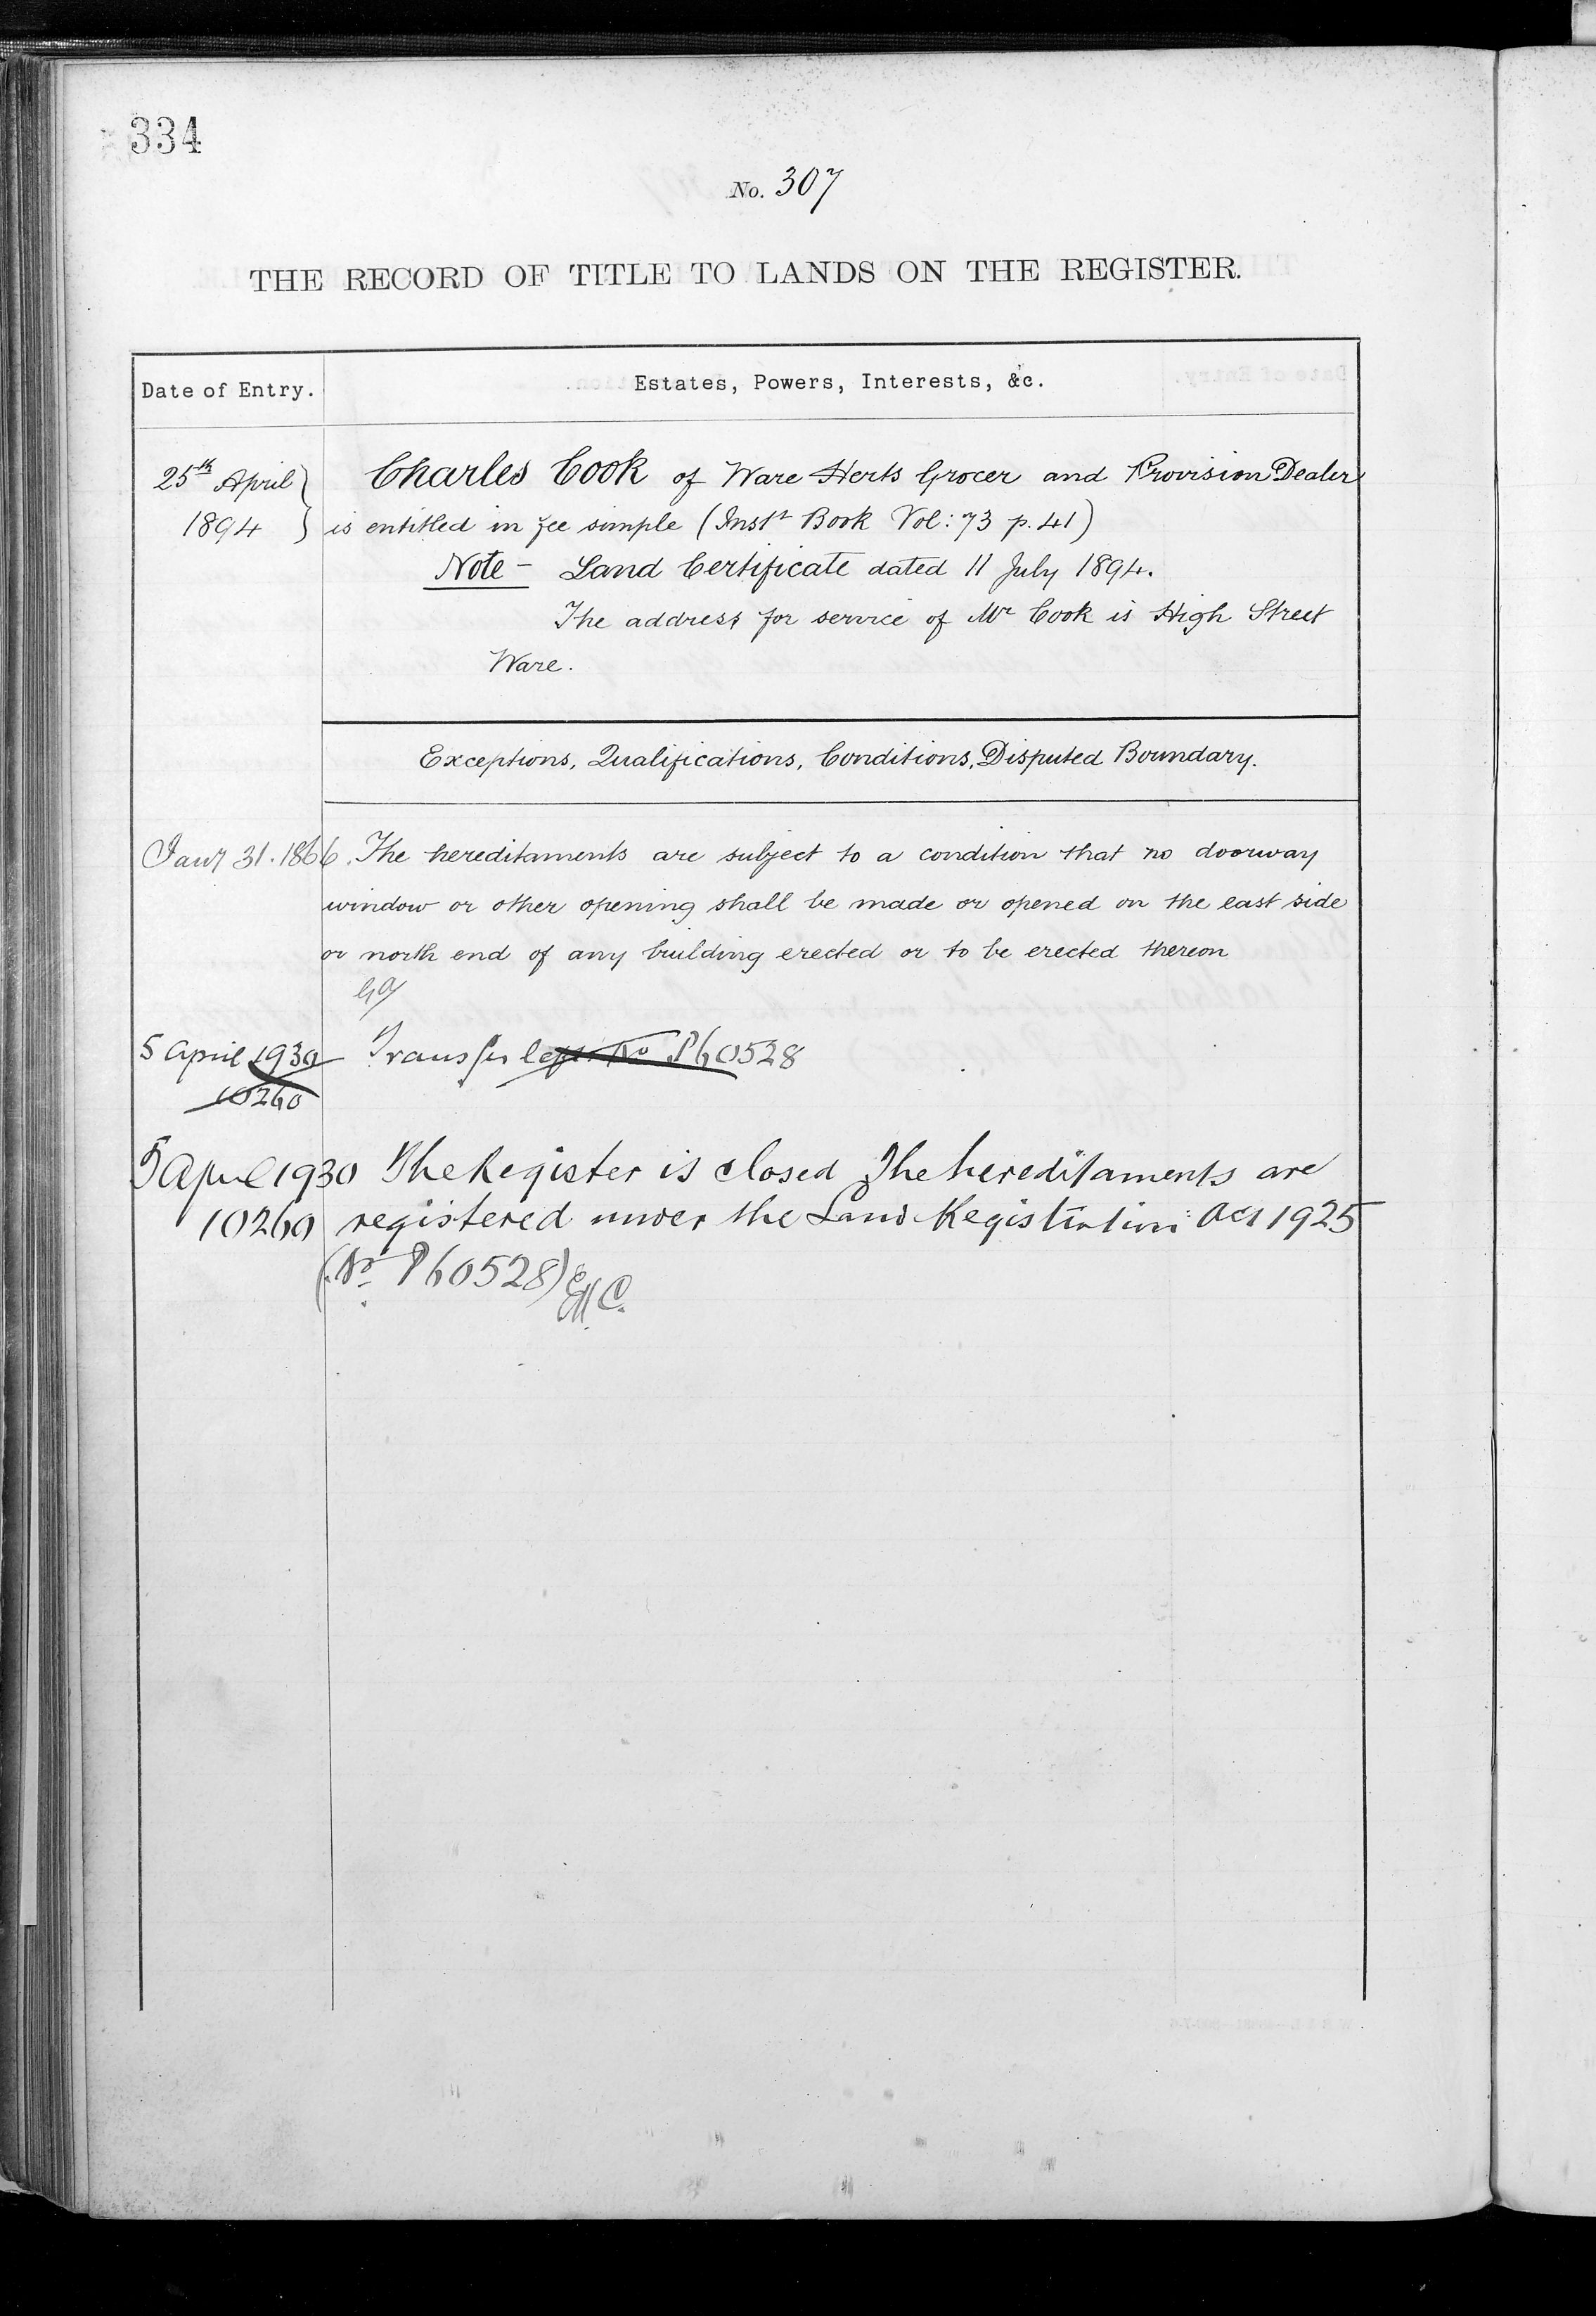 334
No. 307
THE RECORD OF TITLE TO LANDS ON THE REGISTER.
Date of Entry.
Estates, Powers, Interests, &c.
25th April 1894
Charles Cook of Ware Herts Grocer and Provision Dealer
is entitled in fee simple (Instt Book Vol: 73 p. 41)
Note - Land Certificate dated 11 July 1894.
The address for service of Mr Cook is High Street
Ware.
Exceptions, Qualifications, Conditions, Disputed Boundary.
Jany 31. 1866. The hereditaments are subject to a condition that no doorway
window or other opening shall be made or opened on the east side
or north end of any building erected or to be erected thereon
5 April 1930 Transfer No P60528
10260
5 April 1930 The Register is closed The hereditaments are
10260 registered under the Land Registration Act 1925
(No P60528)